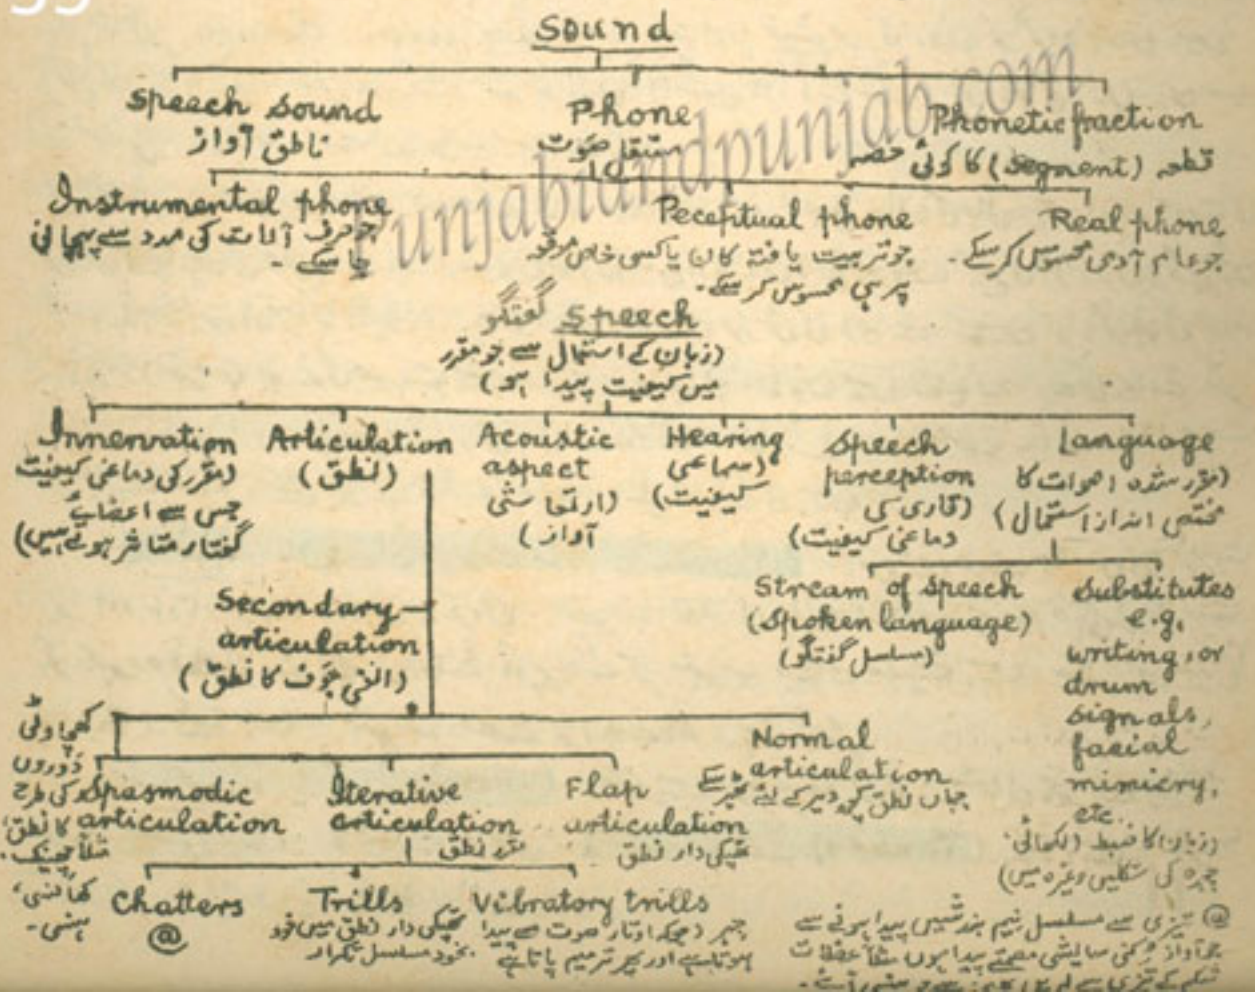 Sound
Speech sound
ناطق آواز
Phone
مستقل صوت
Phonetic fraction
قطعہ (segment) کا کوئی حصہ
Instrumental phone
جو صرف آلات کی مدد سے پہچانی
جا سکے۔
Peceptual phone
جو تربیت یافتہ کان یا کسی خاص موقع
پر ہی محسوس کر سکے۔
Real phone
جو عام آدمی محسوس کر سکے۔
Punjabiandpunjab.com
گفتگو Speech
(زبان کے استعمال سے جو مقرر
میں کیفیت پیدا ہو)
Innervation
(مقرر کی دماغی کیفیت
جس سے اعضائے
گفتار متاثر ہوتے ہیں)
Articulation
(نطق)
Acoustic
aspect
(ارتعاشی
آواز)
Hearing
(سماعی
کیفیت)
Speech
perception
(قاری کی
دماغی کیفیت)
Language
(مقرر شدہ اصوات کا
مختص انداز استعمال)
Secondary
articulation
کا نطق)
Stream of speech
(Spoken language)
(مسلسل گفتگو)
Substitutes
e.g.
writing, or
drum
signals,
facial
mimicry,
etc.
(زبان کا ضبط (لکھائی
چہرہ کی شکلیں وغیرہ میں)
Normal
articulation
جہاں نطق کچھ دیر کے لئے
کھچاوٹی
دوروں
کی طرح
کا نطق،
مثلاً چھینک،
کھانسی،
ہنسی۔
Spasmodic
articulation
Iterative
articulation
نطق
Flap
articulation
تھپکی دار نطق
Chatters
@
Trills
تھپکی دار نطق میں خود
بخود مسلسل تکرار
Vibratory trills
صوت سے پیدا
ہوتا ہے اور پھر ترمیم پاتا ہے
@ تیزی سے مسلسل نیم بندشیں پیدا ہونے سے